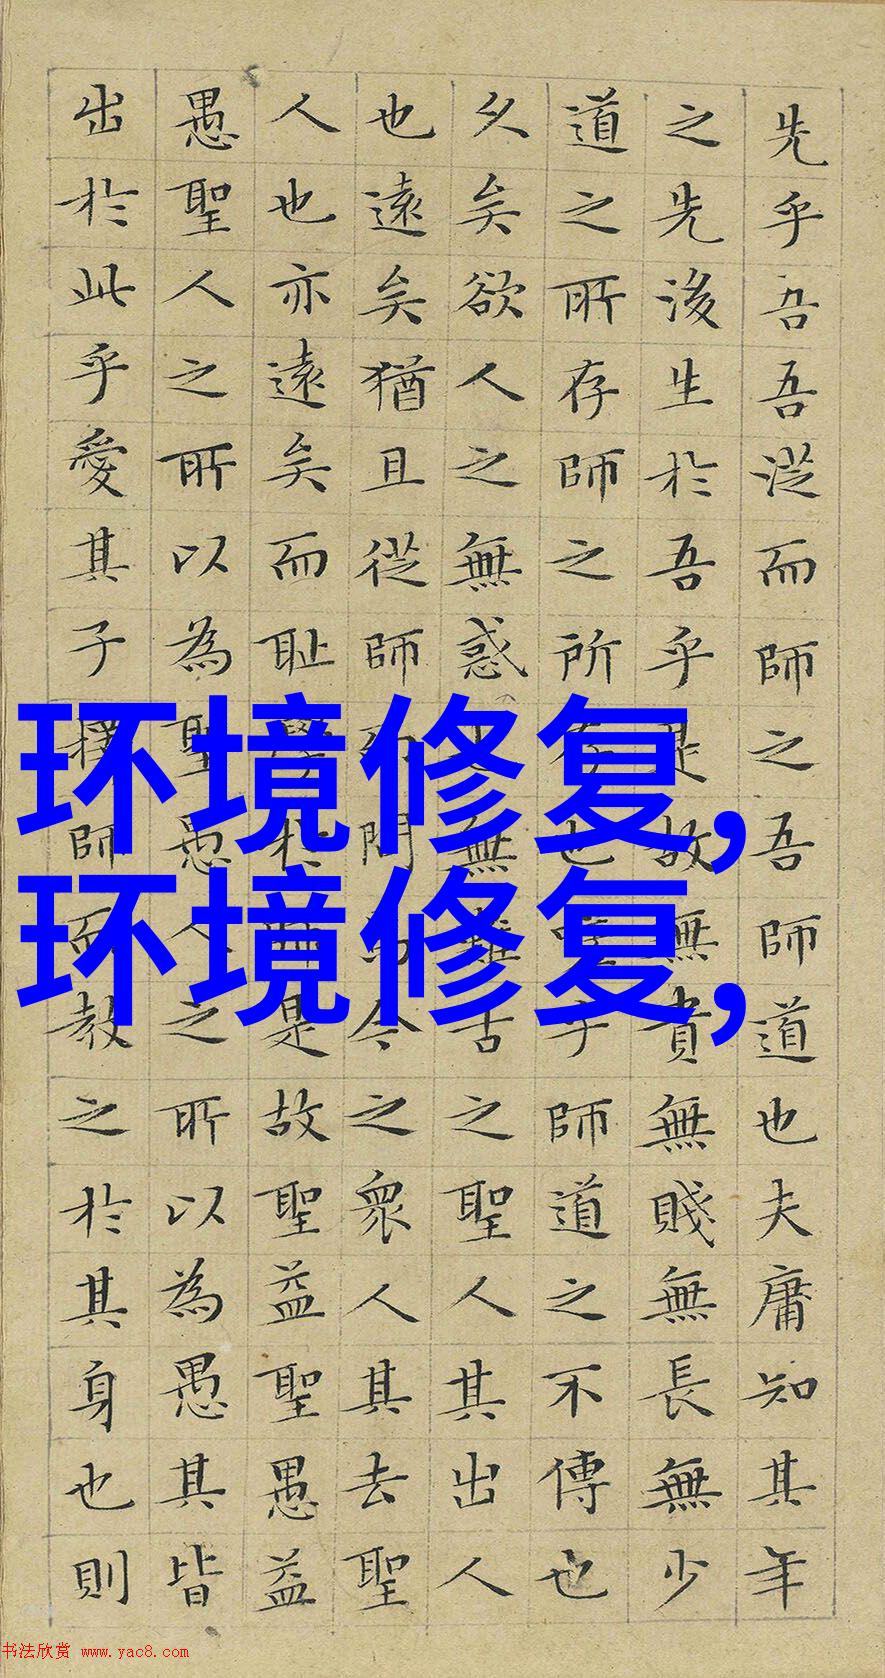 先乎吾吾從而師之吾師道也夫庸知其年
之先後生於吾乎是故無貴無賤無長無少
道之所存師之所存也嗟乎師道之不傳也
久矣欲人之無惑也無難古之聖人其出人
也遠矣猶且從師而問焉今之眾人其去聖
人也亦遠矣而恥學於師是故聖益聖愚益
愚聖人之所以為聖愚人之所以為愚其皆
出於此乎愛其子擇師而教之於其身也則
环境修复,
环境修复,
书法欣赏 www.yac8.com